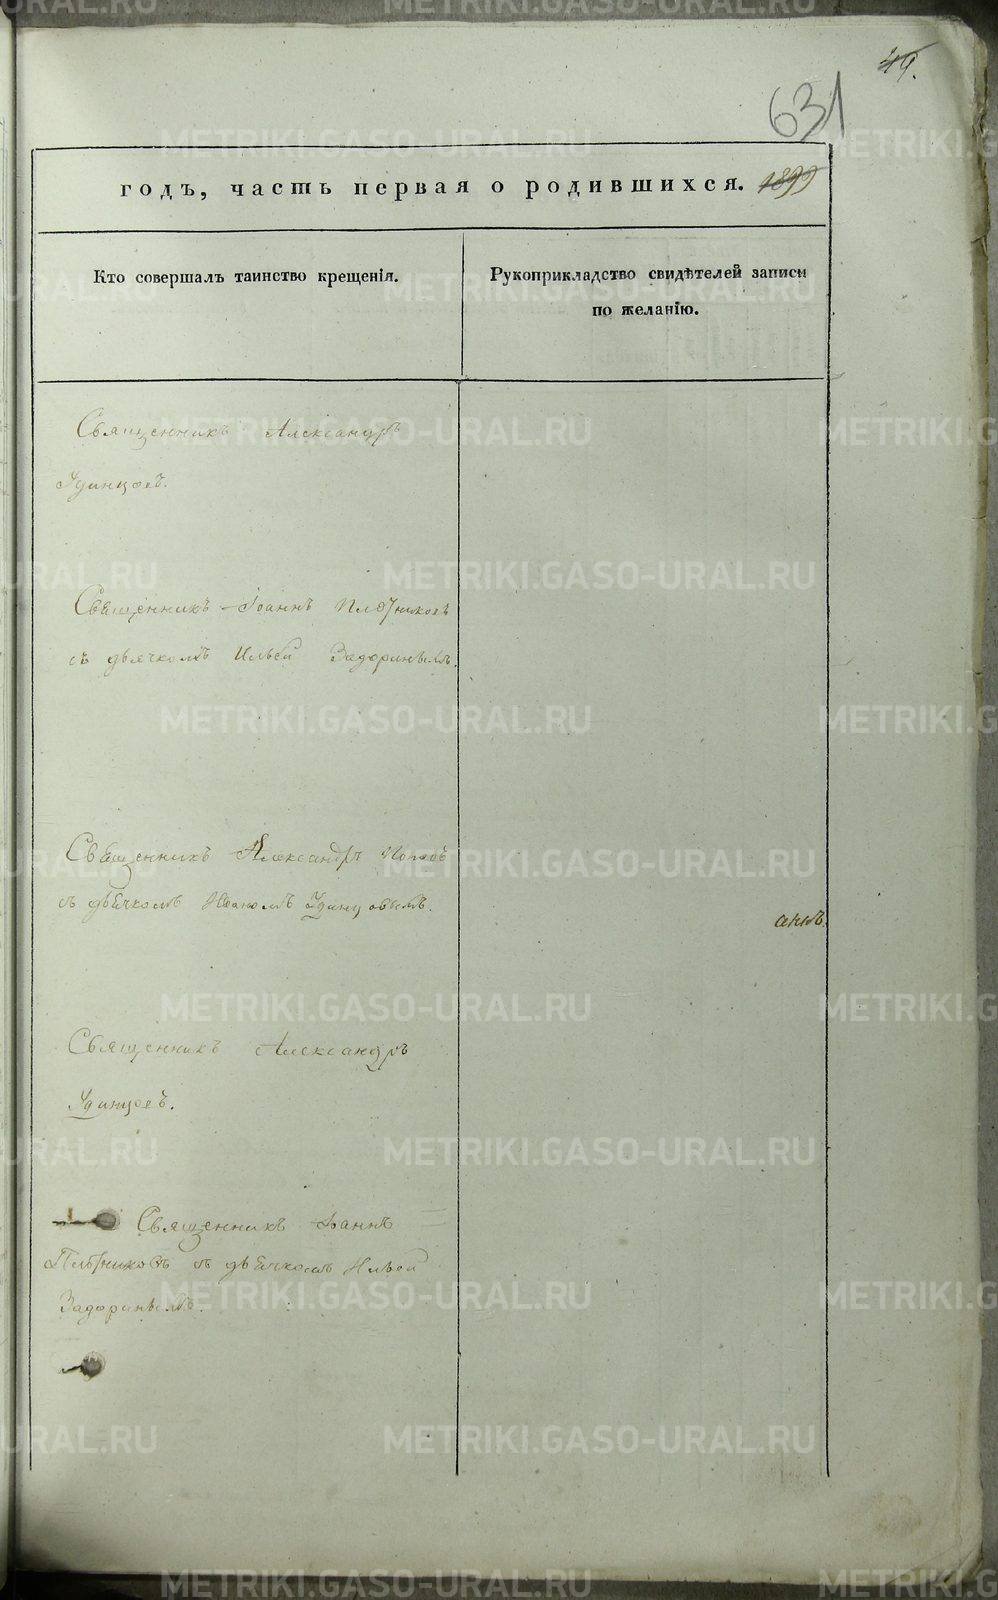 49.
631
годъ, часть первая о родившихся. 1899
Кто совершалъ таинство крещенія.
Рукоприкладство свидѣтелей записи
по желанію.
Священникъ Александръ
Удинцовъ.
Священникъ Іоаннъ Плотниковъ
съ дьячкомъ Ильей Задоринымъ.
Священникъ Александръ Поповъ
съ дьячкомъ Иваномъ Удинцовымъ.
Священникъ Александръ
Удинцовъ.
Священникъ Іоаннъ
Плотниковъ съ дьячкомъ Ильей
Задоринымъ.
METRIKI.GASO-URAL.RU